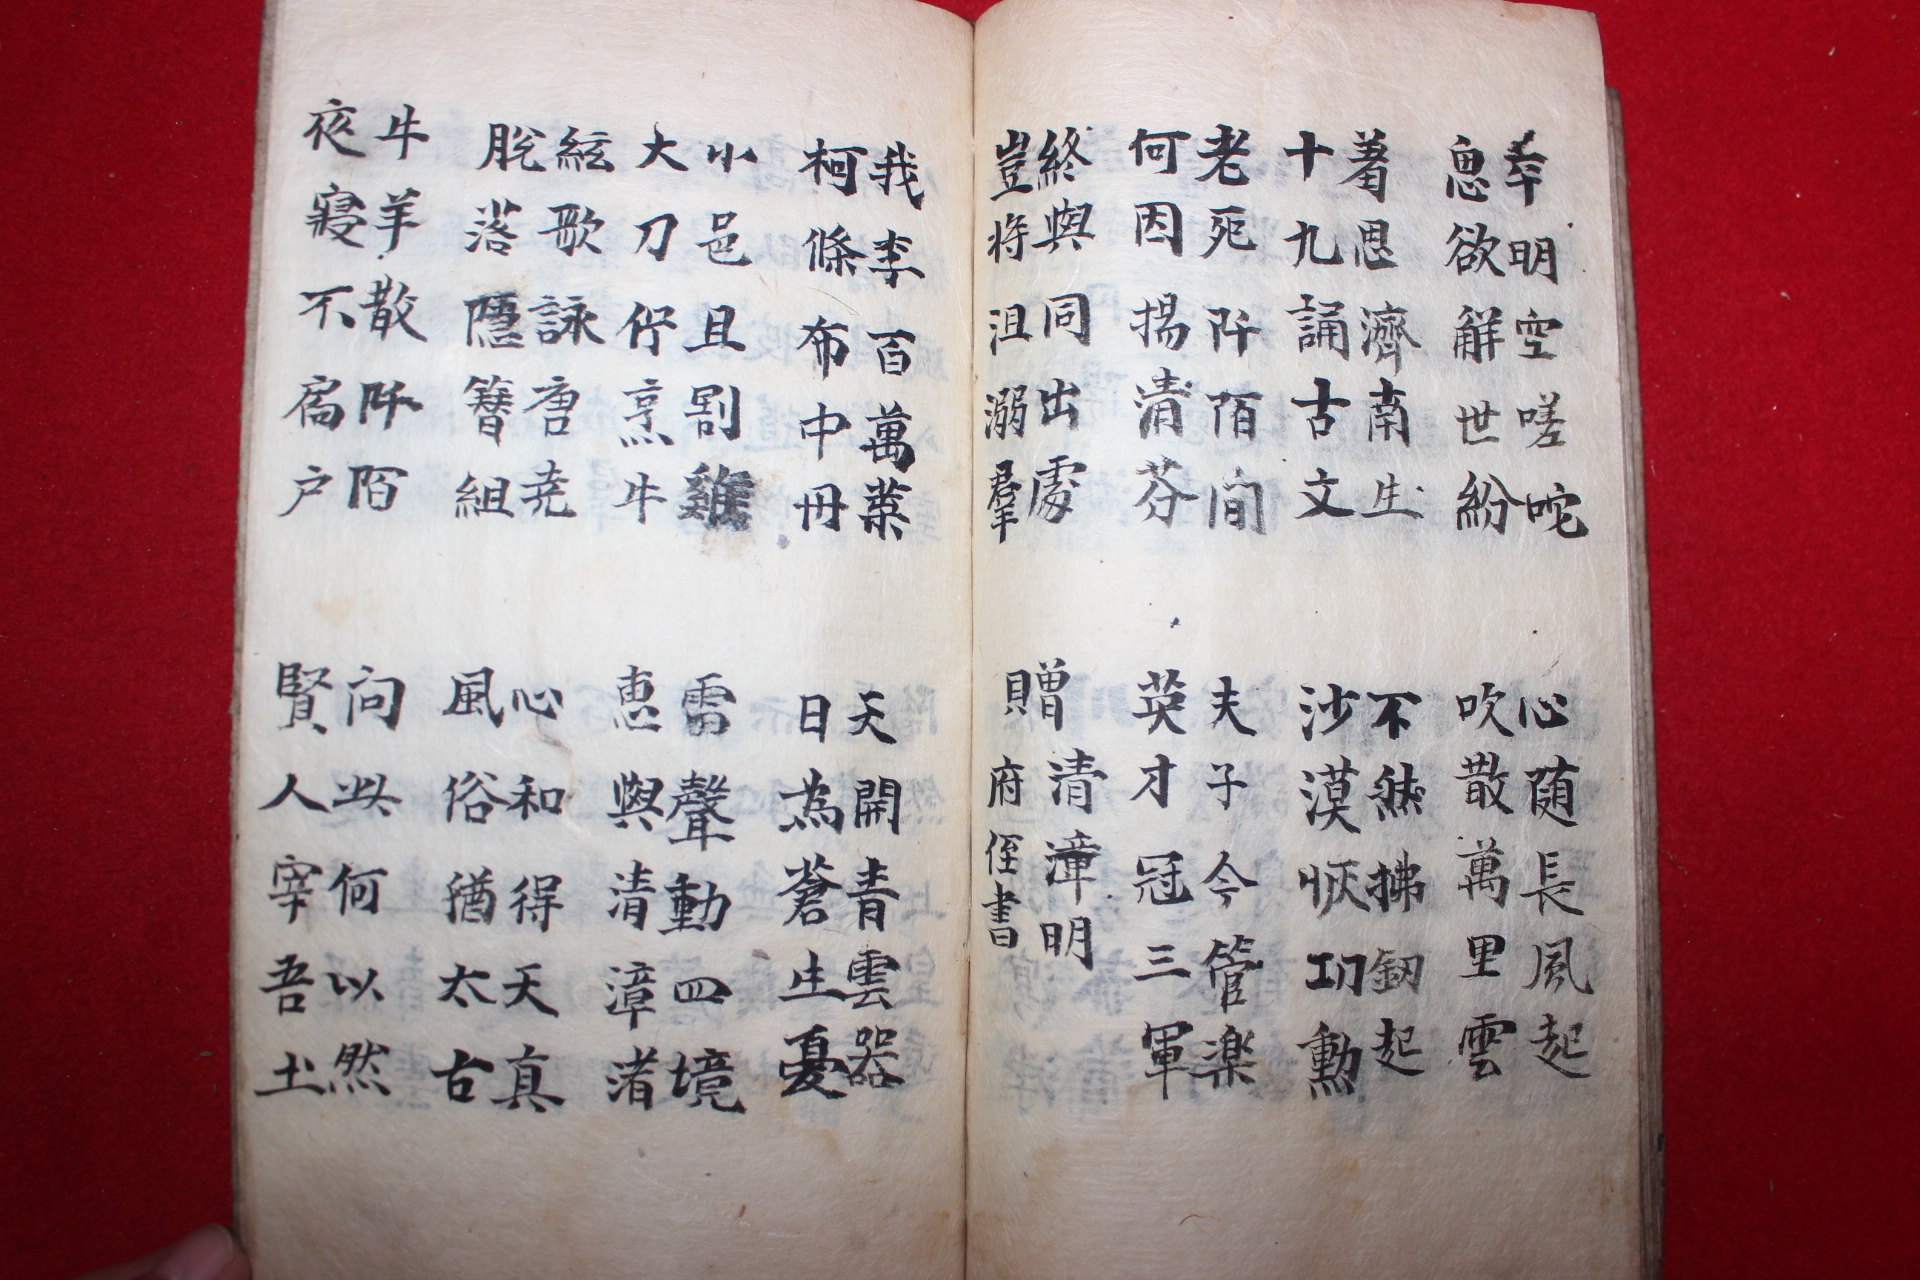 平明空嗟咤
恖欲解世紛
心随長風起
吹散萬里雲
着恩濟南生
十九誦古文
不然拂釼起
沙漠恢功勳
老死阡陌間
何因揚清芬
夫子今管楽
英才冠三軍
終與同出處
豈将沮溺羣
贈清漳明
貝府侄書
我李百萬葉
柯條布中冊
天開青雲器
日為蒼生憂
小邑且割雞
大刀佇烹牛
雷聲動四境
惠與清漳渚
絃歌詠唐尭
脫落隱簪組
心和得天真
風俗猶太古
牛羊散阡陌
夜寢不扃户
问此何以然
賢人宰吾土